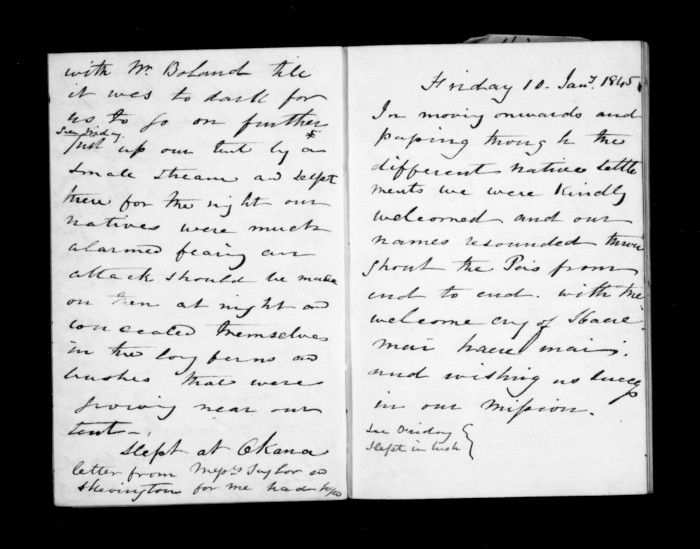 with Mr. Boland till
it was to dark for
us to go on further
See Diday.
Put up our tent by a *
small stream and slept
there for the night our
natives were much
alarmed fearing an
attack should be made
on them at night and
concealed themselves
in the long ferns and
bushes that were
growing near our
tent—.
Slept at Okana
letter from Messrs Taylor and
Skevington for me had
Friday 10. Jany. 1845
In moving onwards and
passing though the
different native settle
ments we were kindly
welcomed and our
names resounded throu
ghout the Pais from
end to end. with the
welcome cry of Haere
mai haere mai.
and wishing us success
in our mission.
See Diday
Slept in bush